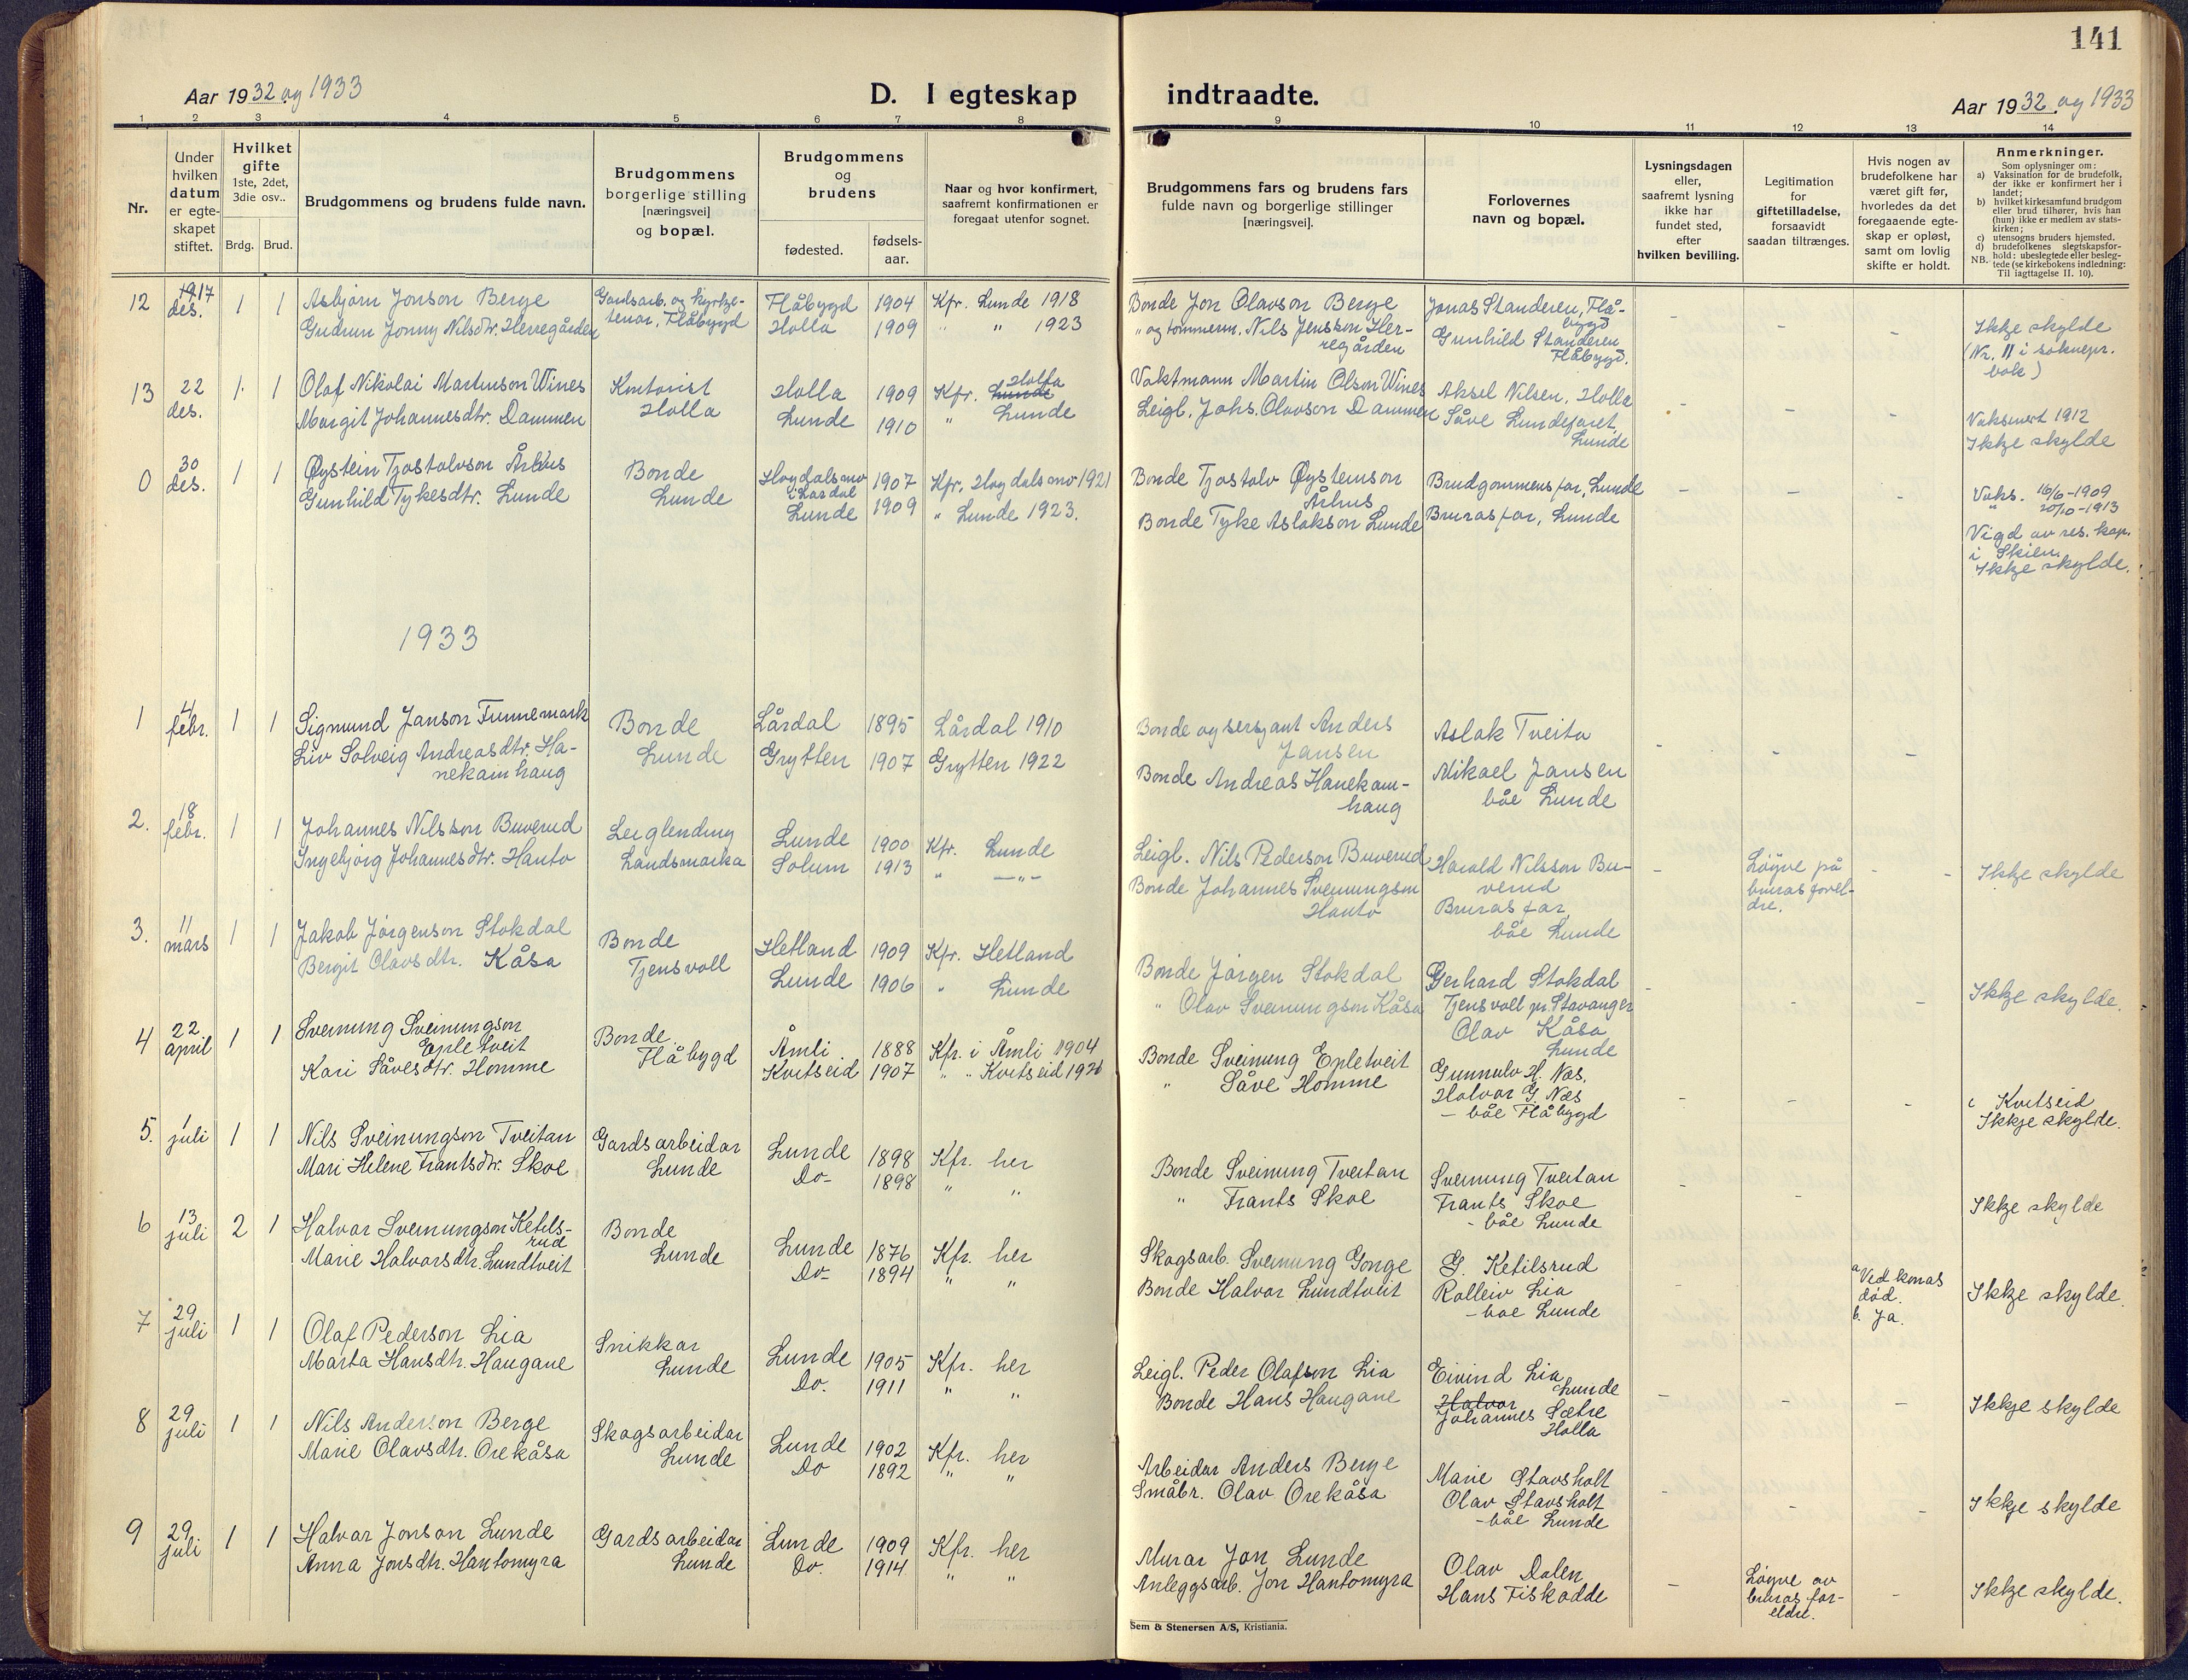 141
Aar 1932 og 1933
D. I egteskap indtraadte.
Aar 1932 og 1933
1 2 3 4 5 6 7 8 9 10 11 12 13 14
Nr.
Under hvilken datum er egteskapet stiftet.
Hvilket gifte 1ste, 2det, 3die osv..
Brdg. Brud.
Brudgommens og brudens fulde navn.
Brudgommens borgerlige stilling [næringsvei] og bopæl.
Brudgommens og brudens
fødested. fødsels-aar.
Naar og hvor konfirmert, saafremt konfirmationen er foregaat utenfor sognet.
Brudgommens fars og brudens fars fulde navn og borgerlige stillinger [næringsvei].
Forlovernes navn og bopæl.
Lysningsdagen eller, saafremt lysning ikke har fundet sted, efter hvilken bevilling.
Legitimation for giftetilladelse, forsaavidt saadan tiltrænges.
Hvis nogen av brudefolkene har været gift før, hvorledes da det foregaaende egteskap er opløst, samt om lovlig skifte er holdt.
Anmerkninger.
Som oplysninger om:
a) Vaksination for de brudefolk, der ikke er konfirmert her i landet;
b) hvilket kirkesamfund brudgom eller brud tilhører, hvis han (hun) ikke er medlem av statskirken;
c) utensogns bruders hjemsted.
d) brudefolkenes slegtskapsforhold: ubeslegtede eller beslegtede (se kirkebokens indledning: Til iagttagelse II. 10).
NB.
12 17 des. 1 1 Asbjørn Jonson Berge Gardsarb. og kyrkjetenar, Flåbygd Flåbygd 1904 Kfr. Lunde 1918 Bonde Jon Olavson Berge Jonas Standeren, Flåbygd - - -
Gudrun Jonny Nilsdtr. Herregården Holla 1909 " " 1923 " og tømmerm. Nils Jensson Herregården Gunhild Standeren Flåbygd. Ikkje skylde (Nr. 11 i soknepr. bok)
13 22 des. 1 1 Olaf Nikolai Martinson Wines Kontorist Holla Holla 1909 Kfr. Lunde Holla Vaktmann Martin Olson Wines Aksel Nilsen, Holla - - -
Margit Johannesdtr. Dammen Lunde 1910 " Lunde Leigl. Johs. Olavson Dammen Såve Lundefaret, Lunde Vaksinert 1912 Ikkje skylde
0 30 des. 1 1 Øystein Tjostolvson Århus Bonde Lunde Høydalsmo i Lårdal 1907 Kfr. Høydalsmo 1921 Bonde Tjostolv Øysteinson Århus Brudgommens far, Lunde - - -
Gunhild Tykesdtr. Lunde Lunde 1909 " Lunde 1923. Bonde Tyke Aslakson Lunde Bruras far, Lunde Vaks. 16/6-1909 " 20/10-1913
Vigd av res. kap. i Skien. Ikkje skylde.
1933
1 4 febr. 1 1 Sigmund Janson Funnemark Bonde Lunde Lårdal 1895 Lårdal 1910 Bonde og sersjant Anders Jansen Aslak Tveito - - -
Liv Solveig Andreasdtr. Hanekamhaug Grytten 1907 Grytten 1922 Bonde Andreas Hanekamhaug Mikael Jansen båe Lunde
2. 18 febr. 1 1 Johannes Nilsson Buverud Leiglending Landsmarka Lunde 1900 Kfr. Lunde Leigl. Nils Pederson Buverud Harald Nilsson Buverud - Løyve på bruras foreldre. - - Ikkje skylde
Ingebjørg Johannesdtr. Hauto Solum 1913 " -"- Bonde Johannes Sveinungson Hauto Bruras far, båe Lunde
3. 11 mars 1 1 Jakob Jørgenson Stokdal Bonde Tjensvoll Hetland 1909 Kfr. Hetland Bonde Jørgen Stokdal Gerhard Stokdal Tjensvoll pr. Stavanger - - - Ikkje skylde.
Bergit Olavsdtr. Kåsa Lunde 1906 " Lunde " Olav Sveinungson Kåsa Olav Kåsa Lunde
4 22 april 1 1 Sveinung Sveinungson Epletveit Bonde Flåbygd Åmli 1888 Kfr. i Åmli 1904 Bonde Sveinung Epletveit Gunnulv H. Næs. - - - i Kvitseid Ikkje skylde.
Kari Såvesdtr. Homme Kvitseid 1907 " " Kvitseid " Såve Homme Halvor G. Næs - båe Flåbygd
5. 1 juli 1 1 Nils Sveinungson Tveitan Gardsarbeidar Lunde Lunde 1898 Kfr. her Bonde Sveinung Tveitan Sveinung Tveitan - - Ikkje skylde
Mari Helene Frantsdtr. Skoe Do- 1898 " " " Frants Skoe Frants Skoe - båe Lunde
6 13 juli 2 1 Halvor Sveinungson Ketilsrud Bonde Lunde Lunde 1876 Kfr. her Skogsarb. Sveinung Gonge G. Ketilsrud - - a Ved konas død. b. Ja. Ikkje skylde.
Marie Halvorsdtr. Lundtveit Do- 1894 " " Bonde Halvor Lundtveit Rolleiv Lia - båe Lunde
7 29 juli 1 1 Olaf Pederson Lia Snikkar Lunde Lunde 1905 Kfr. her Leigl. Peder Olafson Lia Eivind Lia Lunde - - - Ikkje skylde
Marta Hansdtr. Haugane Do. 1911 " " Bonde Hans Haugane Halvor Johannes Sætre Holla
8 29 juli 1 1 Nils Anderson Berge Skogsarbeidar Lunde Lunde 1902 Kfr. her Arbeidar Anders Berge Marie Stavsholt - - - Ikkje skylde
Marie Olavsdtr. Orekåsa Do 1892 " " Småbr. Olav Orekåsa Olav Stavsholt - båe Lunde
9 29 juli 1 1 Halvor Jonson Lunde Gardsarbeidar Lunde Lunde 1909 Kfr. her Murar Jon Lunde Olav Dalen - Løyve av bruras foreldre. - Ikkje skylde.
Anna Jonsdtr. Hautomyra Do. 1914 " " Anleggsarb. Jon Hautomyra Hans Fiskodde
Sem & Stenersen A/S, Kristiania.